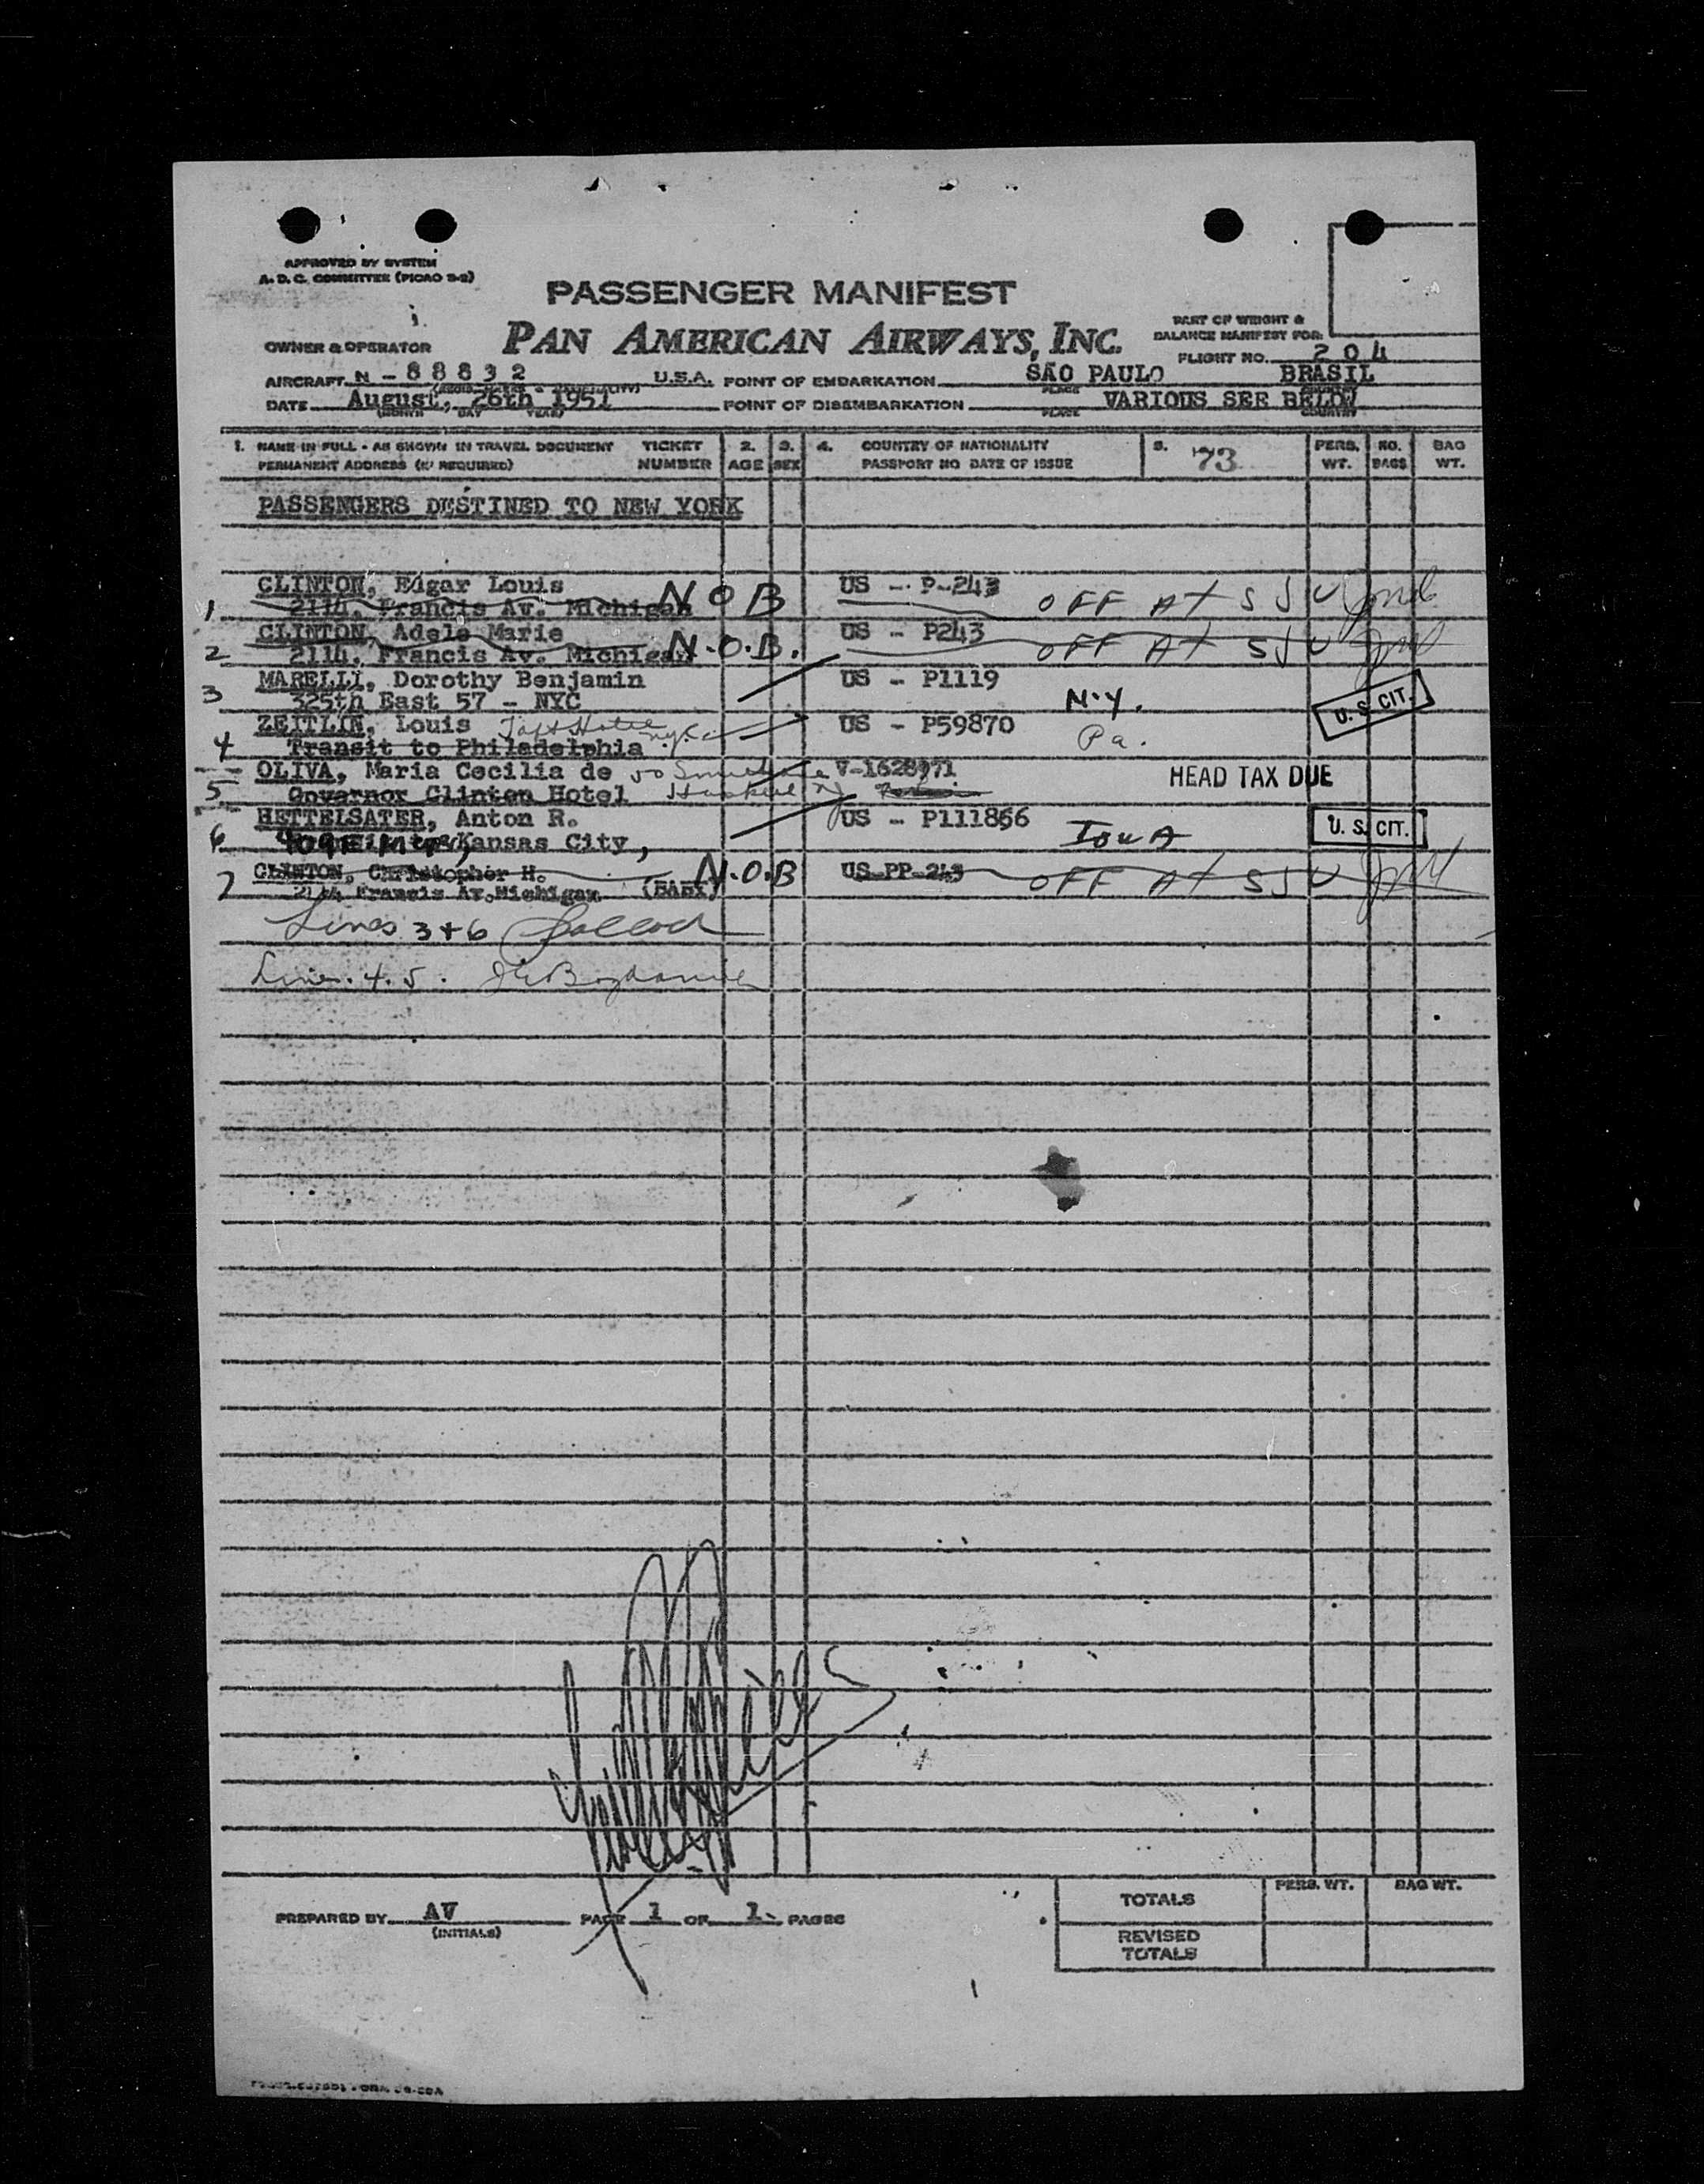 APPROVED BY SYSTEM
A. D. C. COMMITTEE (PICAO 2-2)
PASSENGER MANIFEST
OWNER & OPERATOR PAN AMERICAN AIRWAYS, INC.
PART OF WEIGHT &
BALANCE MANIFEST FOR:
FLIGHT NO. 204
AIRCRAFT N - 88832 U.S.A. POINT OF EMBARKATION SÃO PAULO BRASIL
DATE August, 26th 1951 POINT OF DISEMBARKATION VARIOUS SEE BELOW
(MONTH DAY YEAR) PLACE COUNTRY
1. NAME IN FULL - AS SHOWN IN TRAVEL DOCUMENT TICKET 2. 3. 4. COUNTRY OF NATIONALITY 5. 73 PERS. NO. BAG
PERMANENT ADDRESS (IF REQUIRED) NUMBER AGE SEX PASSPORT NO DATE OF ISSUE WT. BAGS WT.
PASSENGERS DESTINED TO NEW YORK
CLINTON, Edgar Louis US - P-243
1 2114, Francis Av. Michigan N O B OFF AT SJU
CLINTON, Adele Marie US - P243
2 2114, Francis Av. Michigan N.O.B. OFF AT SJU
MARELLI, Dorothy Benjamin US - P1119
3 325th East 57 - NYC N.Y. U. S. CIT.
ZEITLIN, Louis Taft Hotel NYC US - P59870
4 Transit to Philadelphia Pa.
OLIVA, Maria Cecilia de 50 V-1628971 HEAD TAX DUE
5 Governor Clinton Hotel
HETTELSATER, Anton R. US - P111866 U. S. CIT.
6 Kansas City, Iowa
CLINTON, Christopher H. N.O.B US-PP-243 OFF AT SJU
7 2114 Francis Av. Michigan (BABY)
Lines 3+6
Line. 4. 5.
PREPARED BY AV PAGE 1 OF 1 PAGES
(INITIALS)
PERS. WT. BAG WT.
TOTALS
REVISED
TOTALS